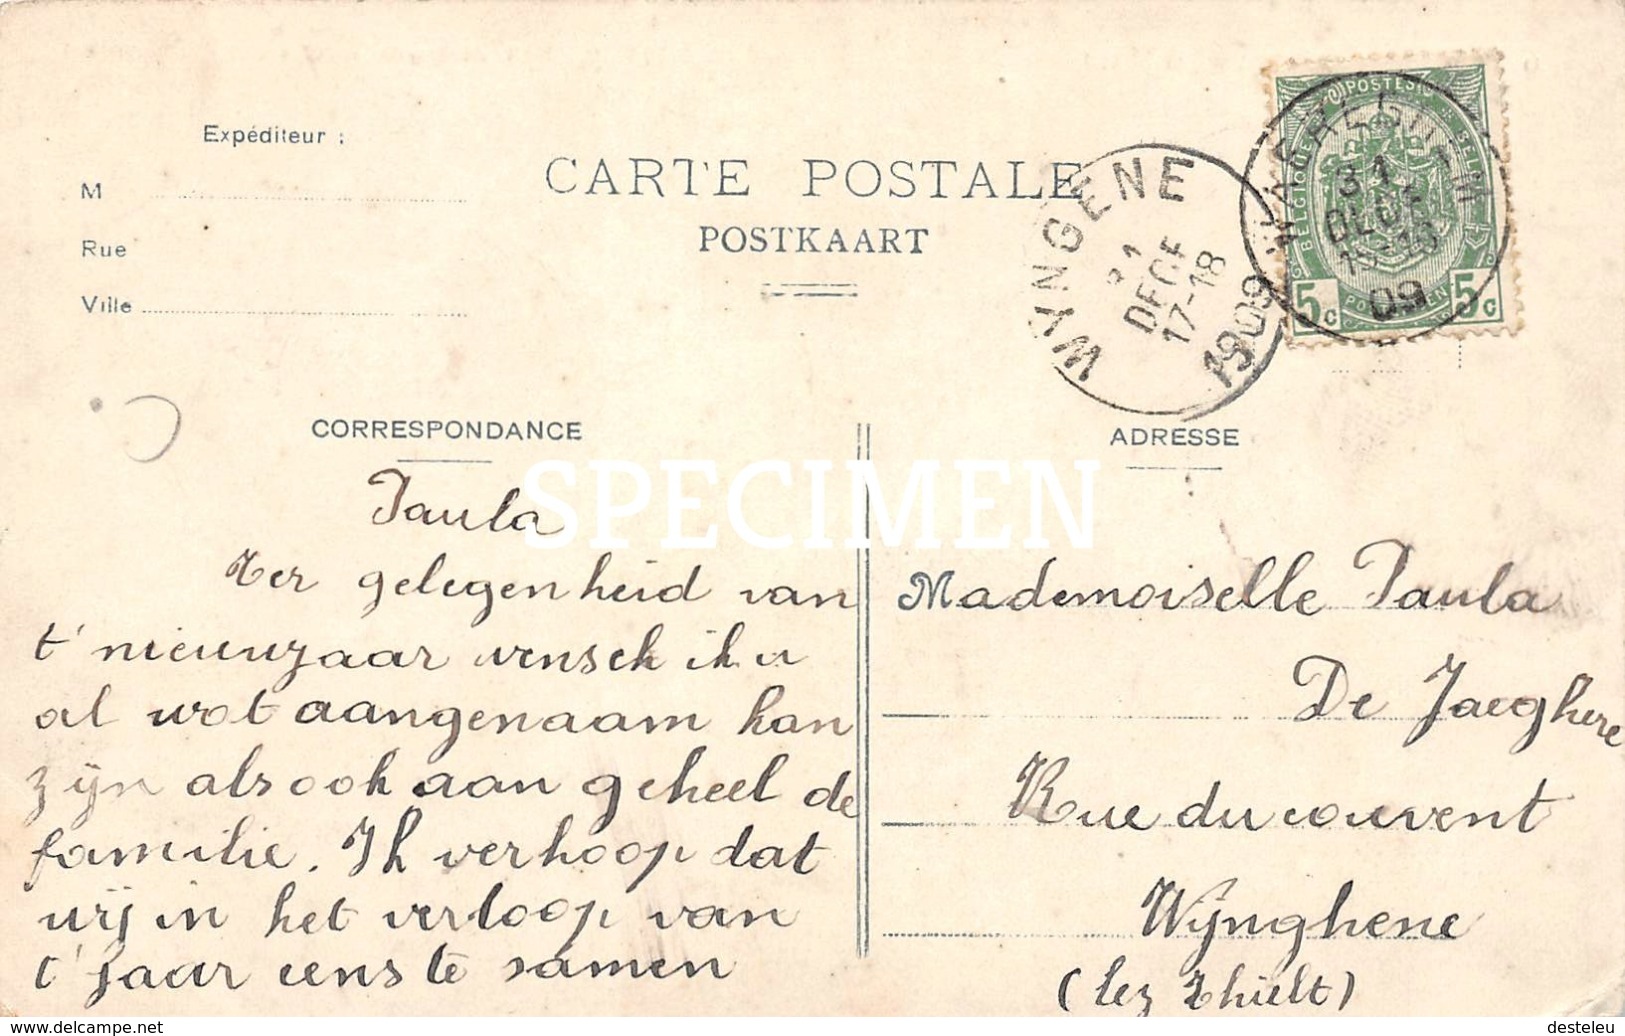 Expéditeur :
M
Rue
Ville
CARTE POSTALE
POSTKAART
WYNGENE
31
DECE
17-18
1909
WAERESCHOOT
31
DECE
09
POSTES
BELGIQUE
BELGIË
5c
5c
CORRESPONDANCE
ADRESSE
SPECIMEN
Paula
Ter gelegenheid van
t' nieuwjaar wensch ik u
al wat aangenaam kan
zijn alsook aan geheel de
familie. Ik verhoop dat
wij in het verloop van
t' jaar eens te samen
Mademoiselle Paula
De Jaeghere
Rue du couvent
Wijnghene
(lez Thielt)
https://www.delcampe.net
desteleu